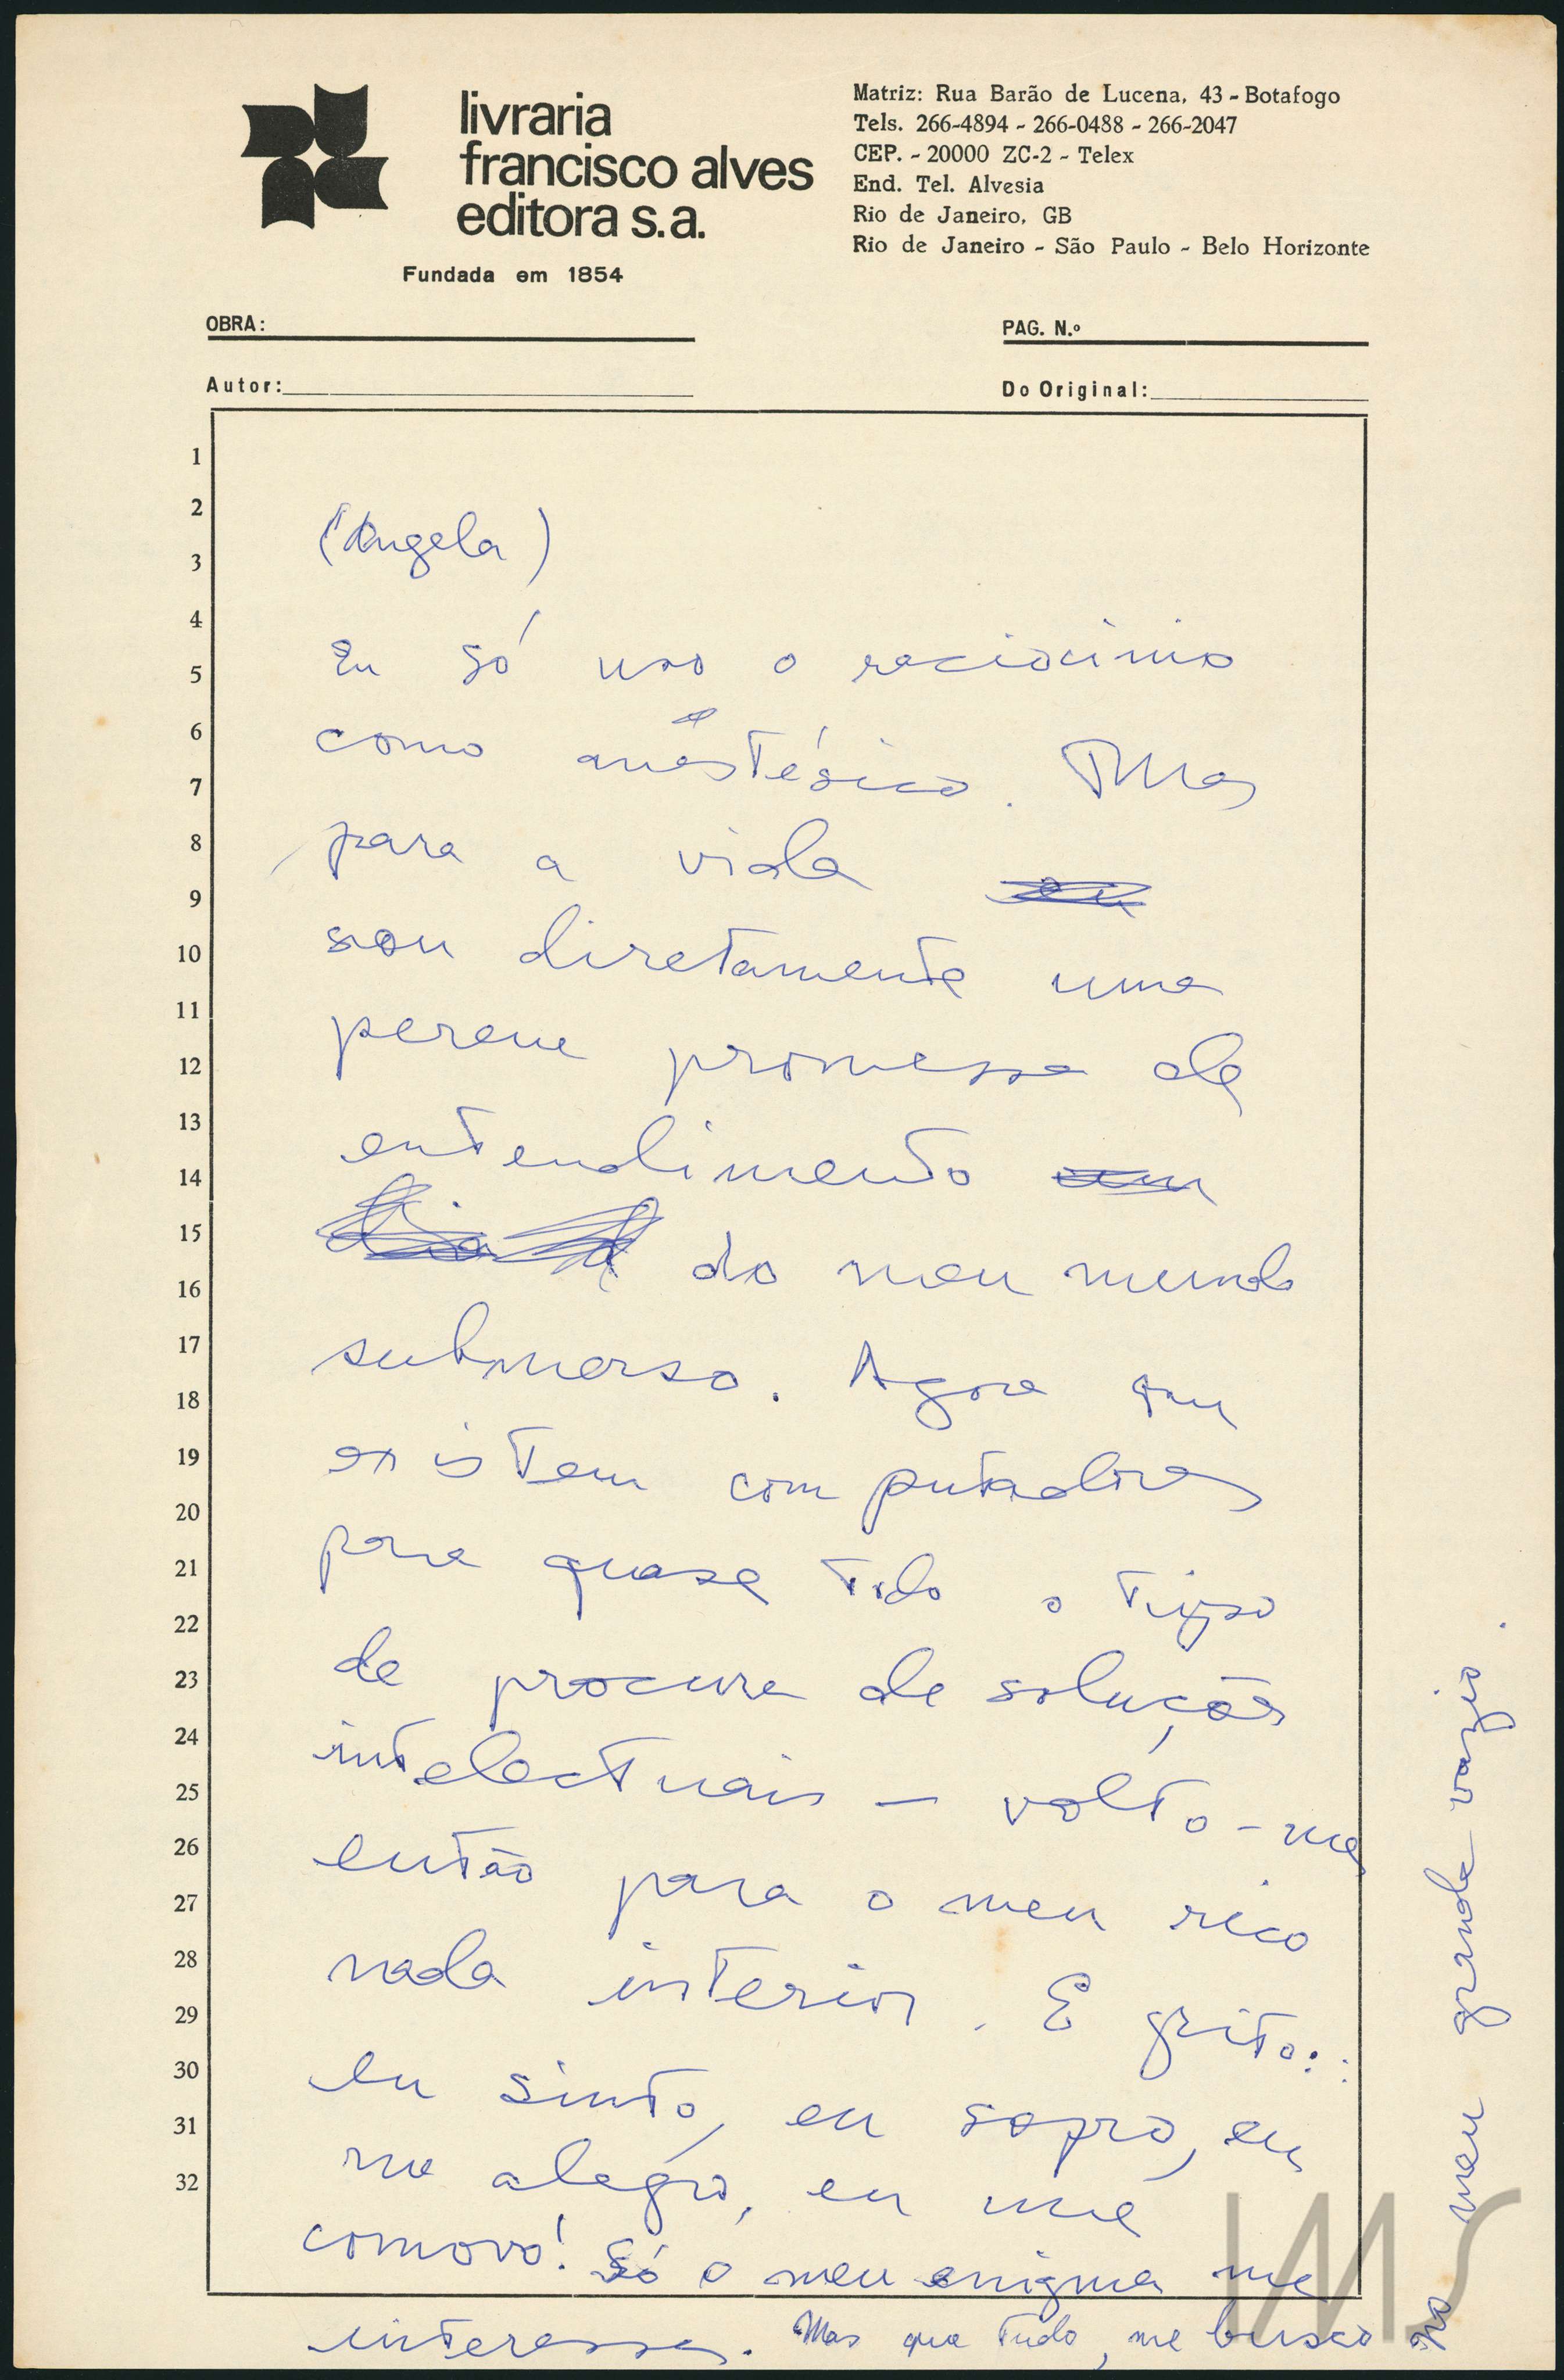 livraria
francisco alves
editora s.a.
Fundada em 1854
Matriz: Rua Barão de Lucena, 43 - Botafogo
Tels. 266-4894 - 266-0488 - 266-2047
CEP. - 20000 ZC-2 - Telex
End. Tel. Alvesia
Rio de Janeiro, GB
Rio de Janeiro - São Paulo - Belo Horizonte
OBRA:
PAG. N.º
Autor:
Do Original:
1
2
3
4
5
6
7
8
9
10
11
12
13
14
15
16
17
18
19
20
21
22
23
24
25
26
27
28
29
30
31
32
(Angela)
Eu só uso o raciocinio
como anestésico. Mas
para a vida
sou diretamente uma
perene promessa de
entendimento
do meu mundo
submerso. Agora que
existem computadores
para quase todo o tipo
de procura de soluções
intelectuais — volto-me
então para o meu rico
nada interior. E grito:
eu sinto, eu sofro, eu
me alegro, eu me
comovo! Só o meu enigma me
interessa. Mas que tudo, me busco
no meu grande vazio.
IMS